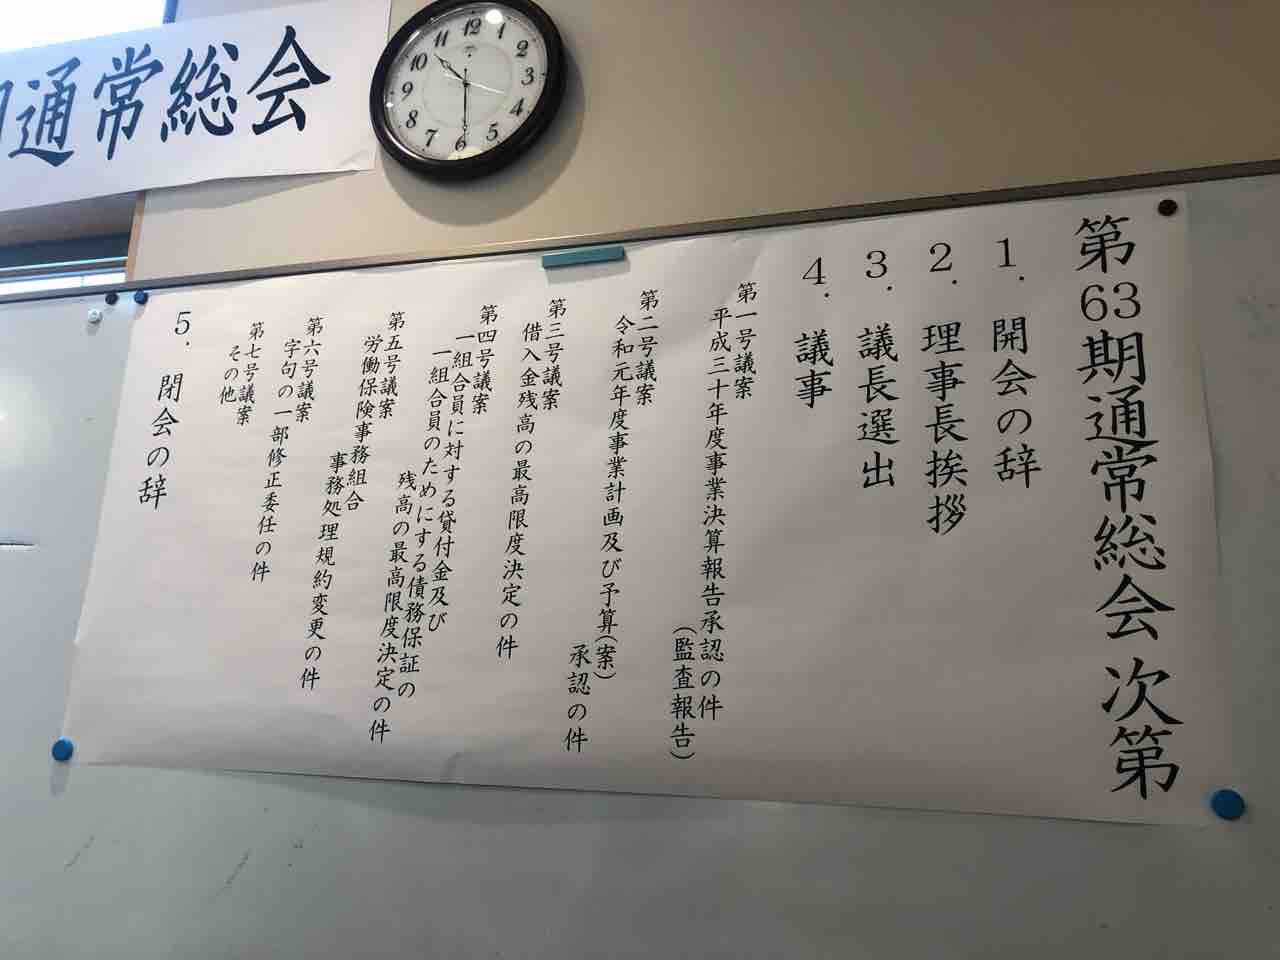 通常総会
12
1
2
3
4
5
6
7
8
9
10
11
第63期通常総会 次第
1. 開会の辞
2. 理事長挨拶
3. 議長選出
4. 議事
第一号議案
平成三十年度事業決算報告承認の件
(監査報告)
第二号議案
令和元年度事業計画及び予算(案)
承認の件
第三号議案
借入金残高の最高限度決定の件
第四号議案
一組合員に対する貸付金及び
一組合員のためにする債務保証の
残高の最高限度決定の件
第五号議案
労働保険事務組合
事務処理規約変更の件
第六号議案
字句の一部修正委任の件
第七号議案
その他
5. 閉会の辞